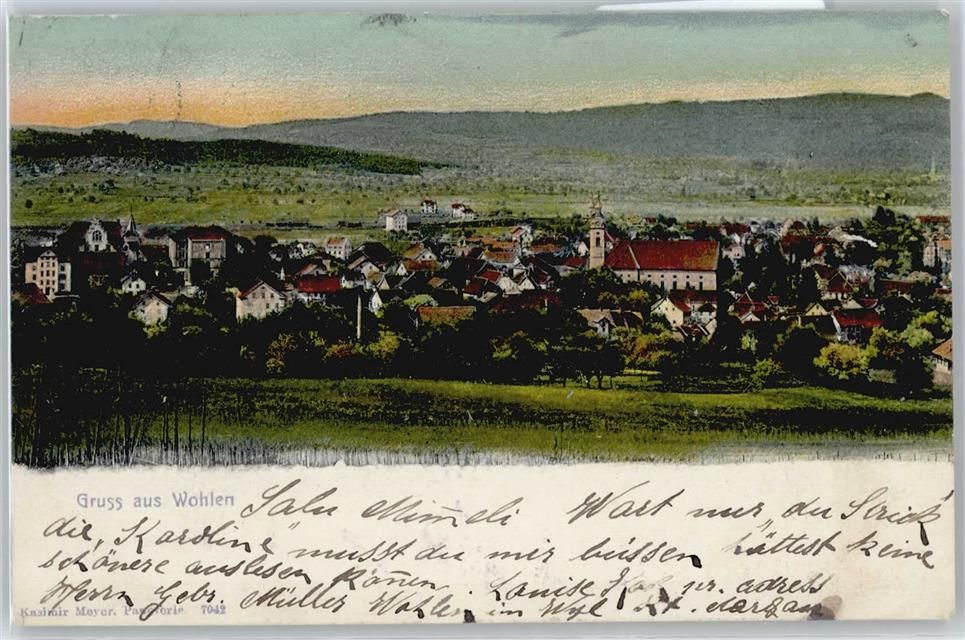 Gruss aus Wohlen
Salu Mimeli Wart nur, du Strick
die, "Kardline" musst du mir büssen hättest keine
schönere auslesen können. Louise pr. adress
Herrn Gebr. Müller Wohlen in Wyl Kt. Aargau
Kasimir Meyer, Papeterie. 7042